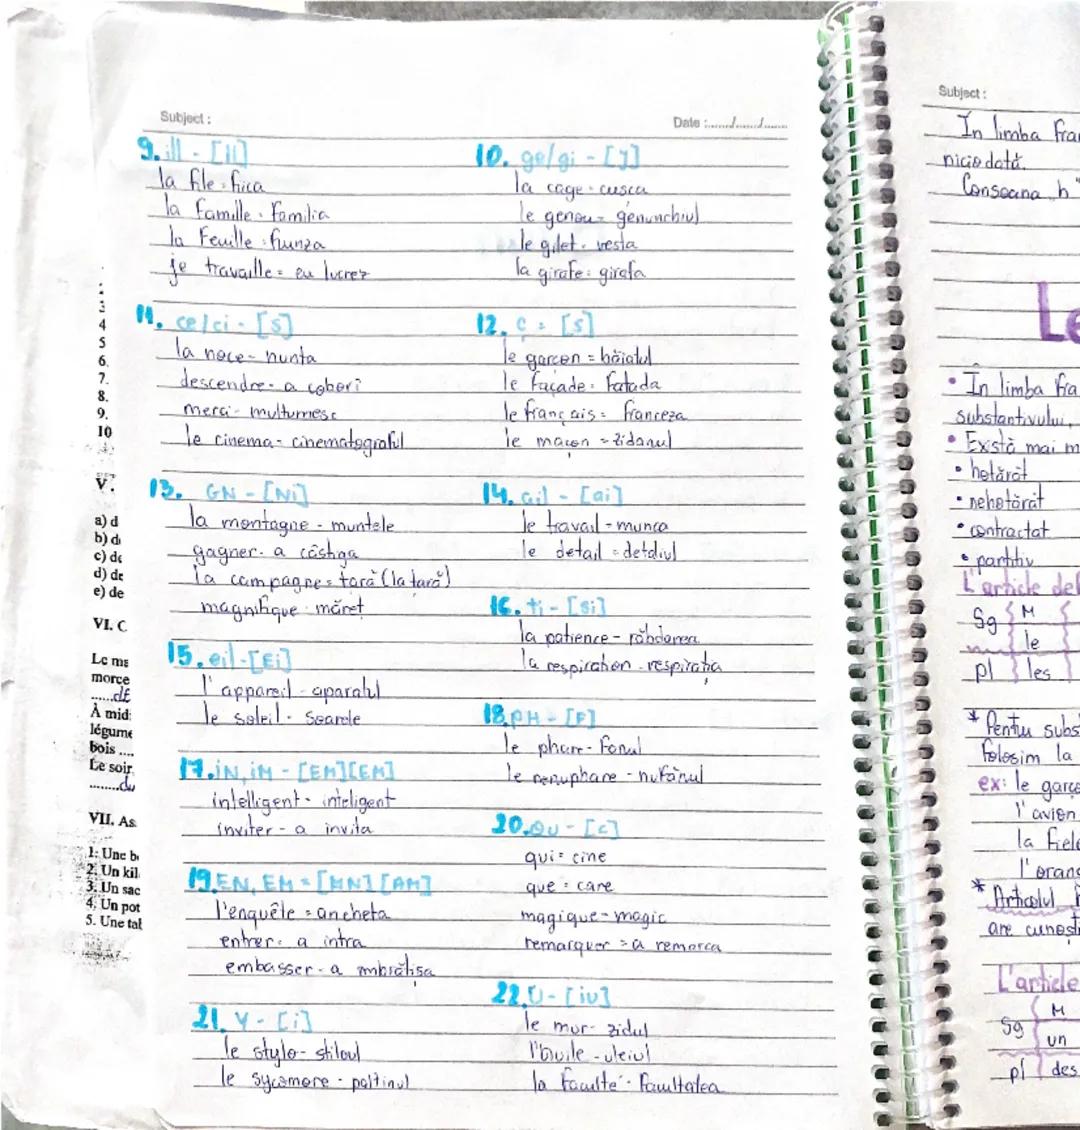 Subject :
Date :......./......./.......
9. ill - [il]
la file = fiica
la famille = familia
la Feuille = frunza
je travaille = eu lucrez
10. ge/gi - [J]
la cage = cusca
le genou = genunchiul
le gilet = vesta
la girafe = girafa
11. ce/ci - [s]
la noce - nunta
descendre - a coborî
merci - multumesc
le cinema - cinematograful
12. ç = [s]
le garcon = băiatul
le façade = fatada
le français = franceza
le maçon = zidarul
13. GN - [Ni]
la montagne - muntele
gagner - a câștiga
la campagne = tară (la tară)
magnifique măret
14. ail - [ai]
le travail - munca
le detail = detaliul
15. eil - [Ei]
l'appareil - aparatul
le soleil - Soarele
16. ti - [si]
la patience - răbdarea
la respiration - respirația
17. iN, iM - [EM][EM]
intelligent - inteligent
inviter - a invita
18. PH - [F]
le phare - Farul
le nenuphare - nufărul
19. EN, EM = [MN] [AM]
l'enquêle = ancheta
entrer - a intra
embasser - a mbrățișa
20. QU - [c]
qui = cine
que = care
magique - magic
remarquer = a remarca
21. Y - [i]
le stylo - stiloul
le sycomore - paltinul
22. U - [iu]
le mur - zidul
l'huile - uleiul
la faculté - Facultatea
3
4
5
6.
7.
8.
9.
10
V.
a) d
b) d
c) de
d) de
e) de
VI. C
Le ma
morce
......de
À mid
légume
bois ....
Le soir
........du
VII. As
1. Une b
2. Un kil
3. Un sac
4. Un pot
5. Une tal
Subject :
In limba fra
niciodată.
Consoana "h"
Le
• In limba fra
substantivului,
• Există mai m
• hotărât
• nehotărât
• contractat
• partitiv
L'article def
Sg M
le
pl les
* Pentru subs
folosim la
ex: le garço
l'avion
la fiele
l'orang
* Articolul
are cunosti
L'article
M
Sg un
pl des